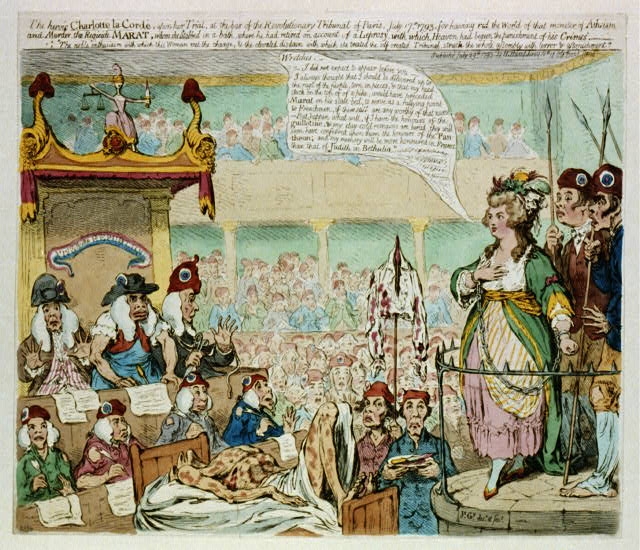 The heroic Charlotte la Cordé, upon her Trial, at the bar of the Revolutionary Tribunal of Paris, July 17th 1793, for having rid the World of that monster of Atheism
and Murder, the Regicide MARAT, whom she stabbed in a bath, where he had retired on account of a Leprosy, with which, Heaven had begun the punishment of his Crimes.
"The noble enthusiasm with which this Woman met the charge, & the elevated disdain with which she treated the self created Tribunal, struck the whole assembly with terror & astonishment."
Wretches,
I did not expect to appear before you
I always thought that I should be delivered up to
the rage of the people, torn in pieces, & that my head,
stuck on the top of a pike, would have preceded
Marat on his state bed, to serve as a rallying point
to Frenchmen, if there still are any worthy of that name.
But, happen what will, if I have the honours of the
guillotine, & my clay-cold remains are buried, they will
soon have conferred upon them the honours of the Pan-
theon; and my memory will be more honoured in France
than that of Judith in Bethulia.
Js. Gy. desn. et fect.